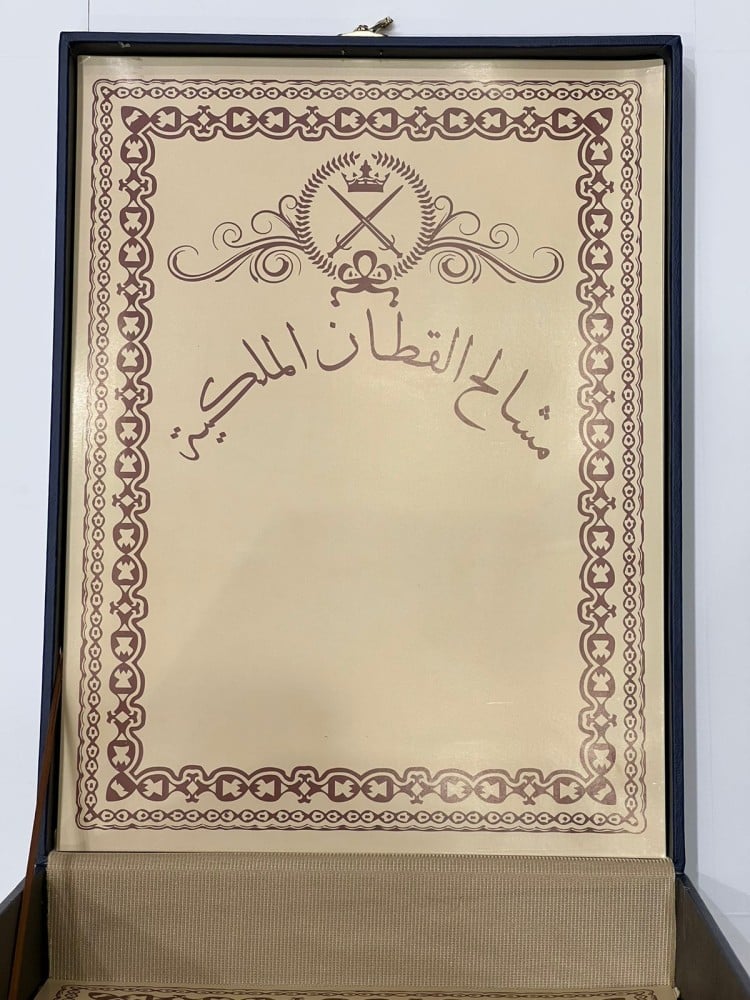 مشالح القطان الملكية